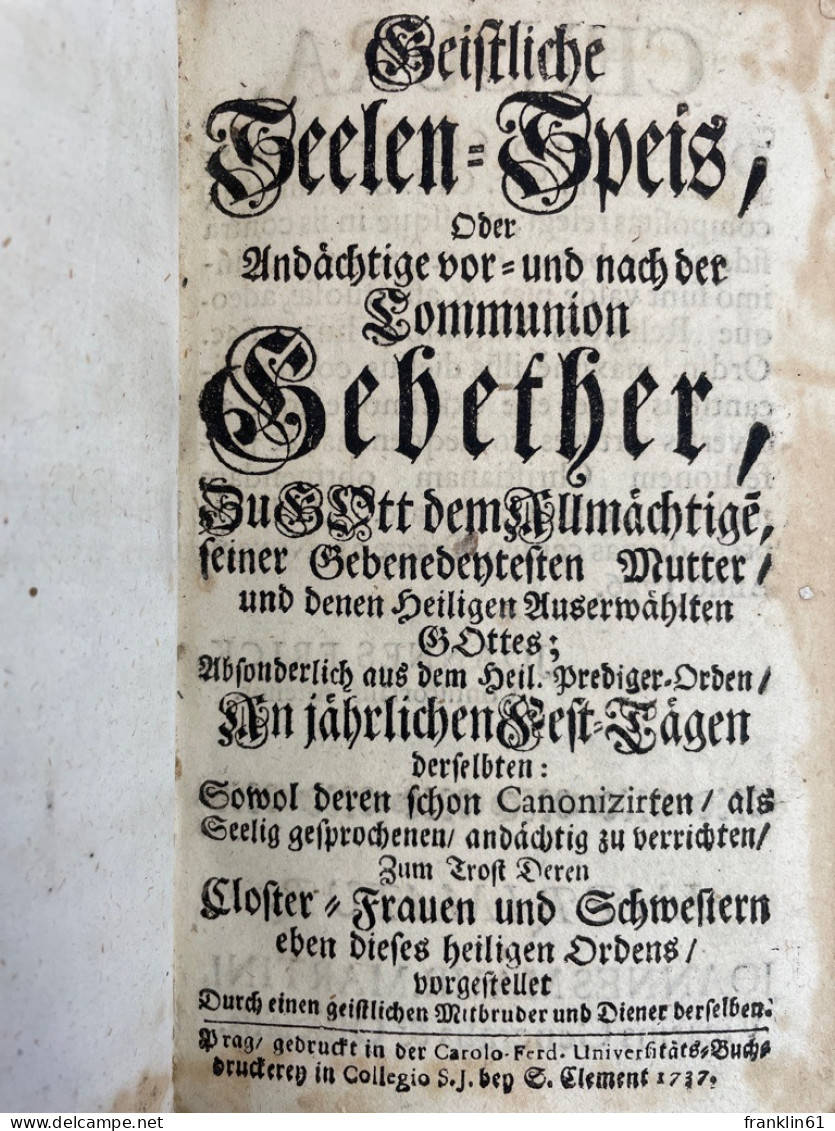 Geistliche
Seelen-Speis,
Oder
Andächtige vor- und nach der
Communion
Gebether,
Zu GOtt dem Allmächtigē,
seiner Gebenedeytesten Mutter /
und denen Heiligen Auserwählten
GOttes;
Absonderlich aus dem Heil. Prediger-Orden /
An jährlichen Fest-Tägen
derselbten:
Sowol deren schon Canonizirten / als
Seelig gesprochenen / andächtig zu verrichten /
Zum Trost Deren
Closter-Frauen und Schwestern
eben dieses heiligen Ordens /
vorgestellet
Durch einen geistlichen Mitbruder und Diener derselben.
Prag / gedruckt in der Carolo-Ferd. Universitäts-Buch-
druckerey in Collegio S.J. bey S. Clement 1737.
franklin61